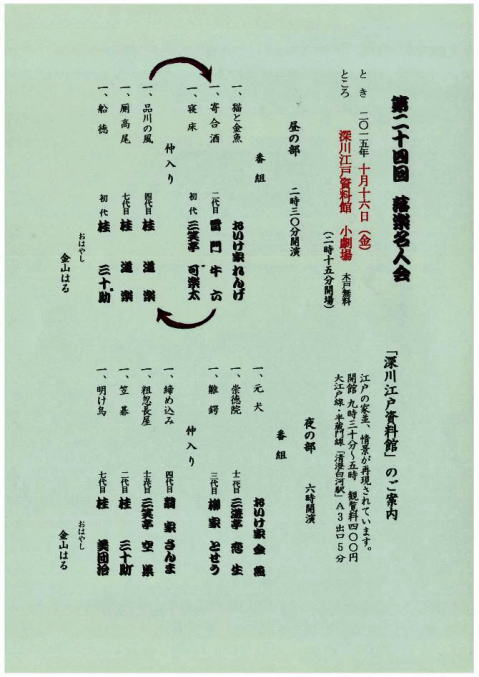 第二十四回 蔵楽名人会
とき 二〇一五年 十月十六日(金)
ところ 深川江戸資料館 小劇場 木戸無料
(二時十五分開場)
昼の部 二時三〇分開演
番組
一、猫と金魚 おいけ家れんげ
一、寄合酒 二代目 雷門牛六
一、寝床 初代 三笑亭可楽太
仲入り
一、品川の風 四代目 桂道楽
一、厠高尾 七代目 桂道楽
一、船徳 初代 桂三十助
おはやし
金山はる
「深川江戸資料館」のご案内
江戸の家並、情景が再現されています。
開館 九時三十分~五時 観覧料四〇〇円
大江戸線・半蔵門線「清澄白河駅」A3出口5分
夜の部 六時開演
番組
一、元犬 おいけ家金魚
一、崇徳院 十二代目 三遊亭恋生
一、難鍔 三代目 柳家とせう
仲入り
一、締め込み 四代目 翁家さんま
一、粗忽長屋 十五代目 三笑亭空楽
一、笠碁 二代目 桂三十助
一、明け烏 七代目 桂美団治
おはやし
金山はる